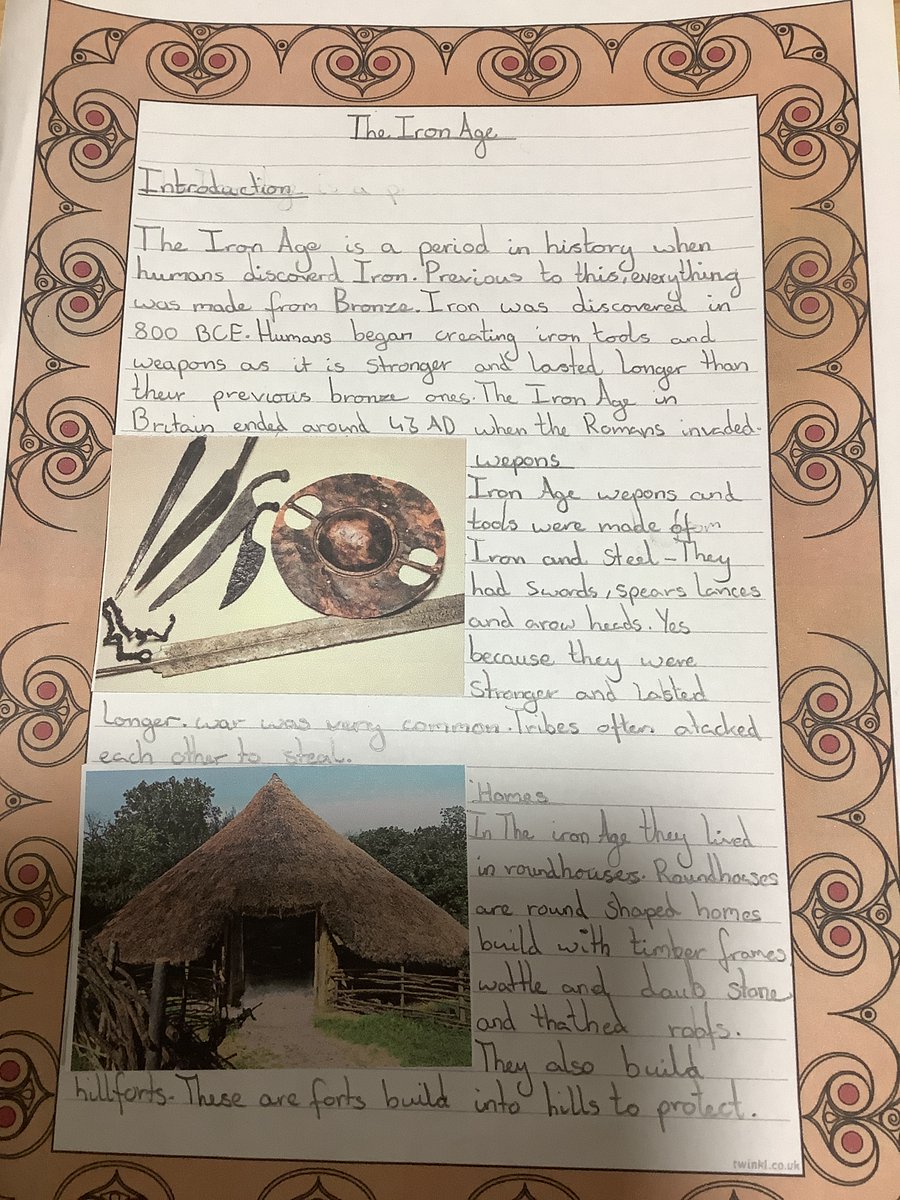 The Iron Age
Introduction
The Iron Age is a period in history when
humans discoverd Iron. Previous to this, everything
was made from Bronze. Iron was discovered in
800 BCE. Humans began creating iron tools and
weapons as it is stronger and lasted longer than
their previous bronze ones. The Iron Age in
Britain ended around 43 AD when the Romans invaded.
wepons
Iron Age wepons and
tools were made
Iron and steel - They
had swords, spears lances
and arow heads. Yes
because they were
stronger and lasted
longer. war was very common. Tribes often atacked
each other to steal.
Homes
In The iron Age they lived
in roundhouses. Roundhouses
are round shaped homes
build with timber frames
wattle and daub stone
and thathed roofs.
They also build
hillforts. These are forts build into hills to protect.
twinkl.co.uk